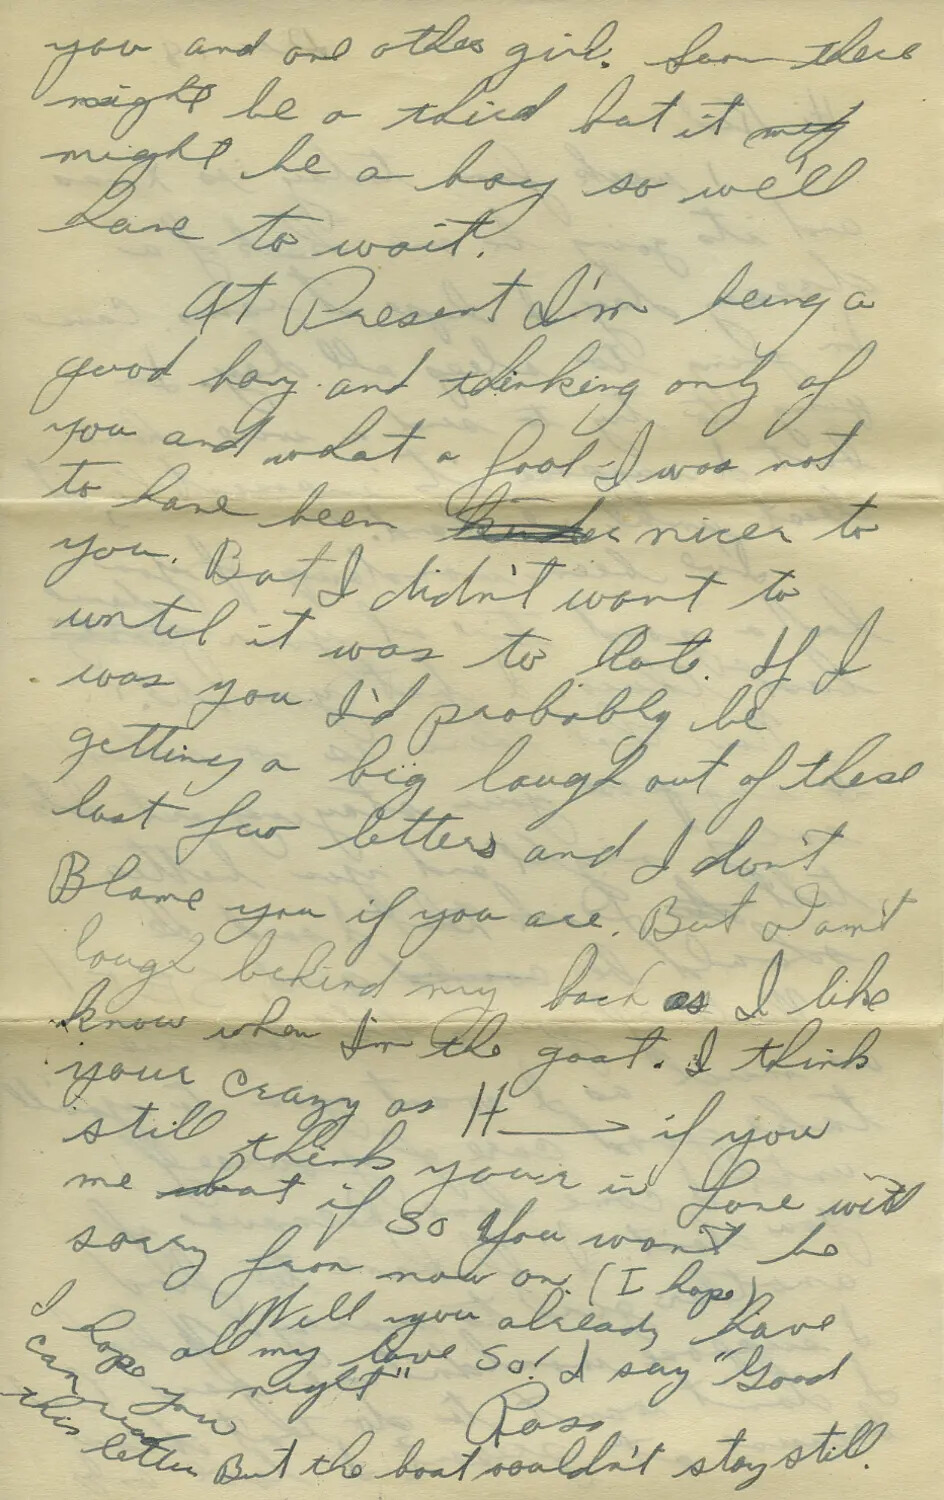 you and one other girl. Soon there
might be a third but it may
might be a boy so we'll
have to wait.
At Present I'm being a
good boy and thinking only of
you and what a fool I was not
to have been nicer to
you. But I didn't want to
until it was to late. If I
was you I'd probably be
getting a big laugh out of these
last few letters and I don't
Blame you if you are. But don't
laugh behind my back as I like
know when I'm the goat. I think
your crazy as H— if you
still think your in love with
me but if so you won't be
sorry from now on. (I hope)
Well you already have
al my love So! I say "Good
night"
Ross
I hope you
can read
this letter But the boat wouldn't stay still.